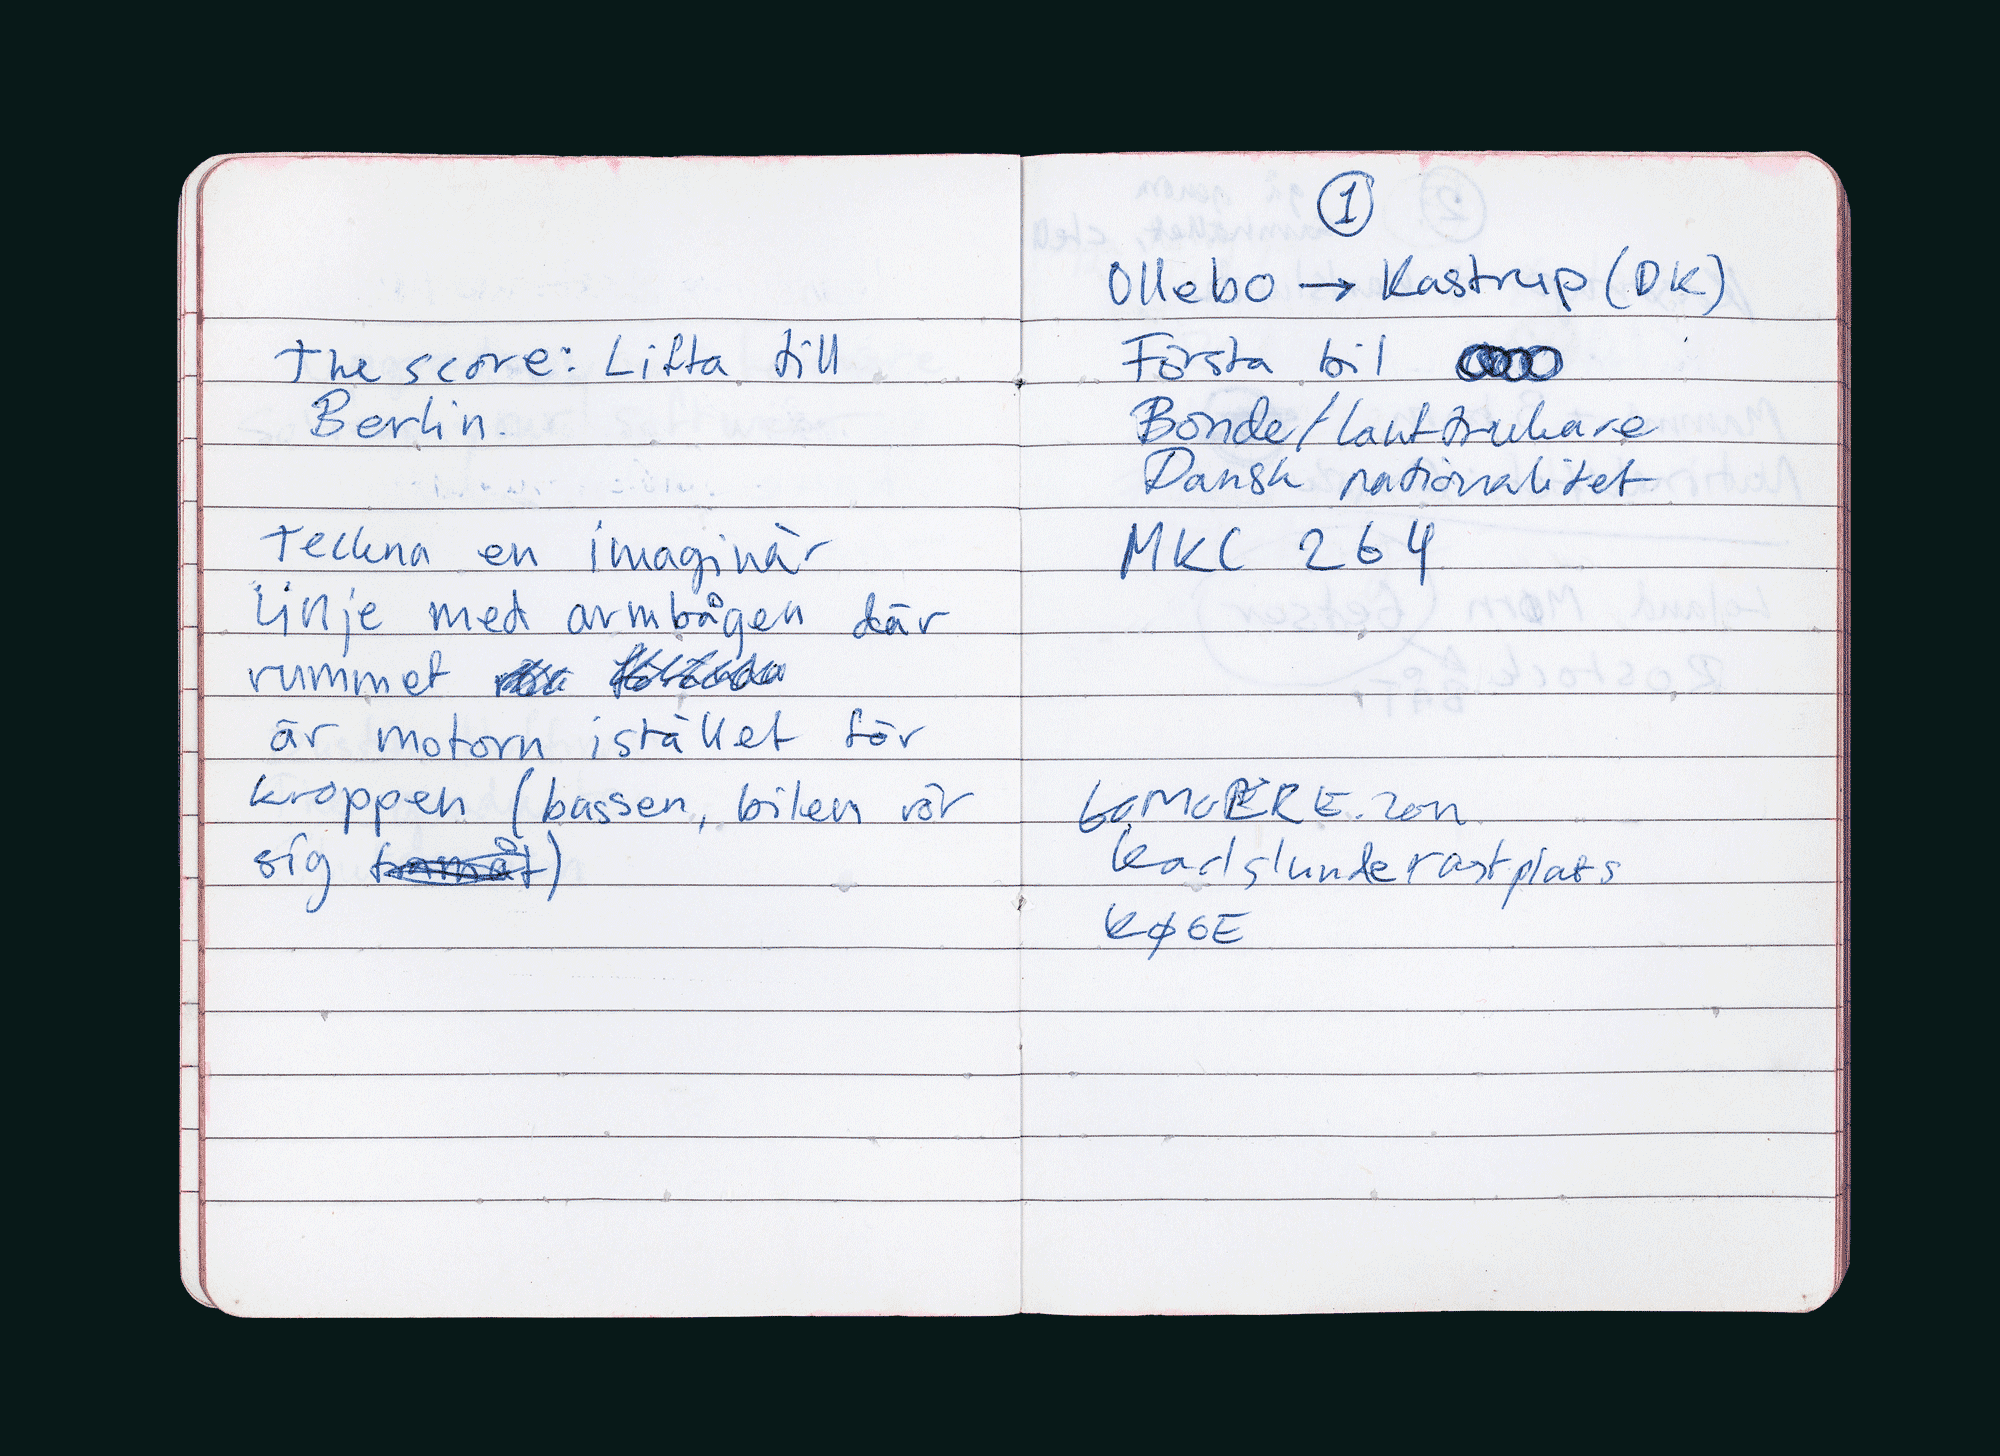 The score: Lifta till
Berlin.
Teckna en imaginär
linje med armbågen där
rummet
är motorn istället för
kroppen (bassen, bilen rör
sig framåt)
1
Ollebo → Kastrup (DK)
Första bil
Bonde/lantbrukare
Dansk nationalitet
MKC 264
Karlslunde rastplats
KØGE